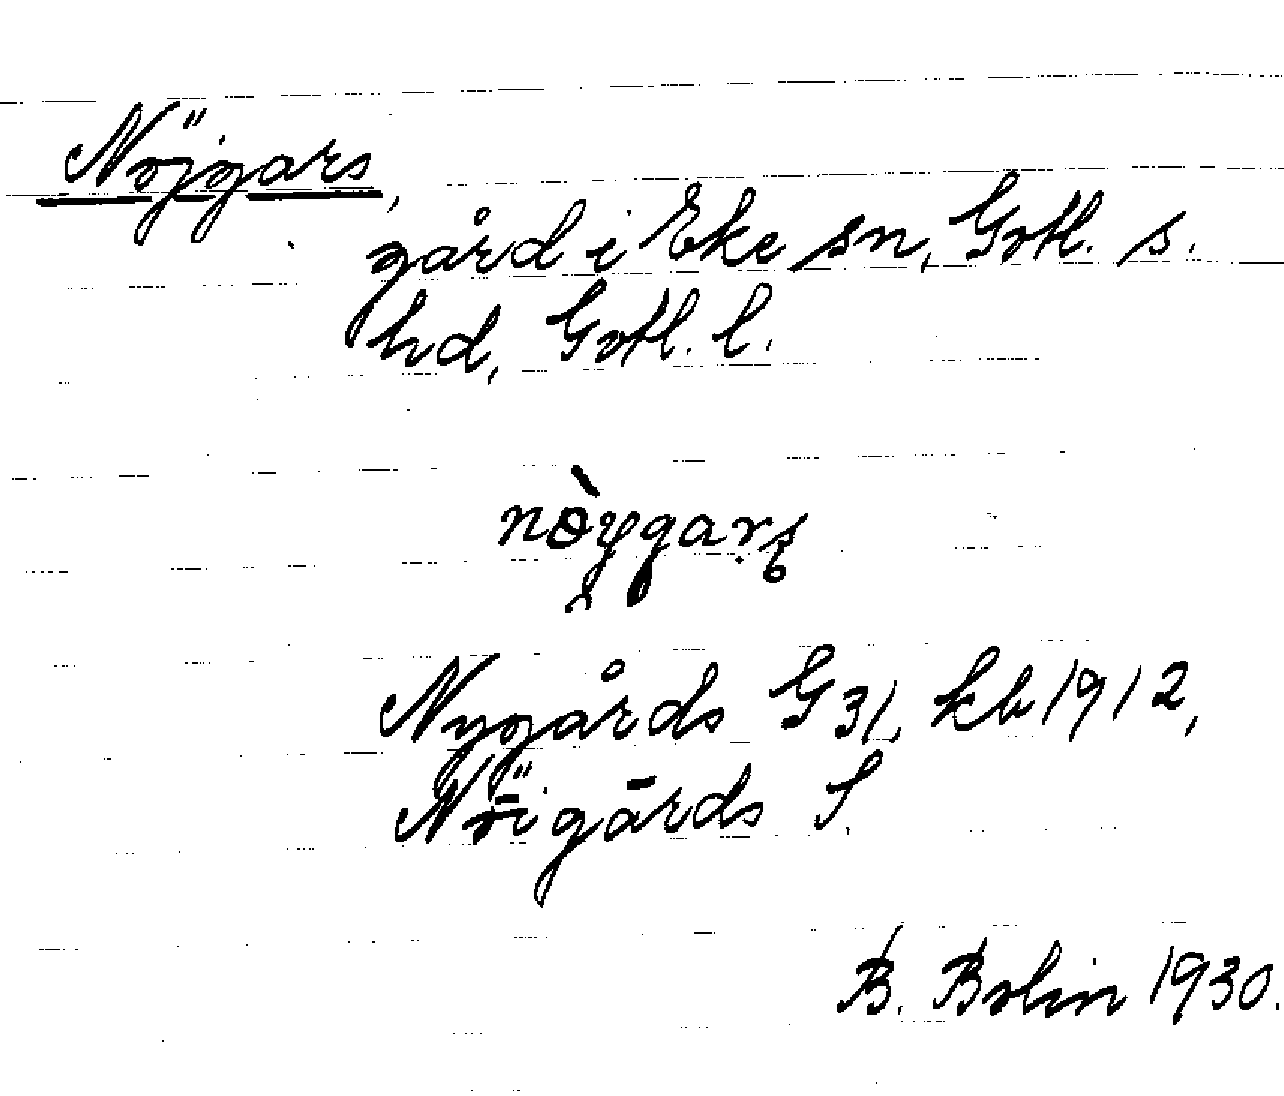 Nöjgars,
gård i Eke sn, Gotl. s.
hd, Gotl. l.
Nygårds G31, kb 1912,
Nöigārds S.
B. Bolin 1930.